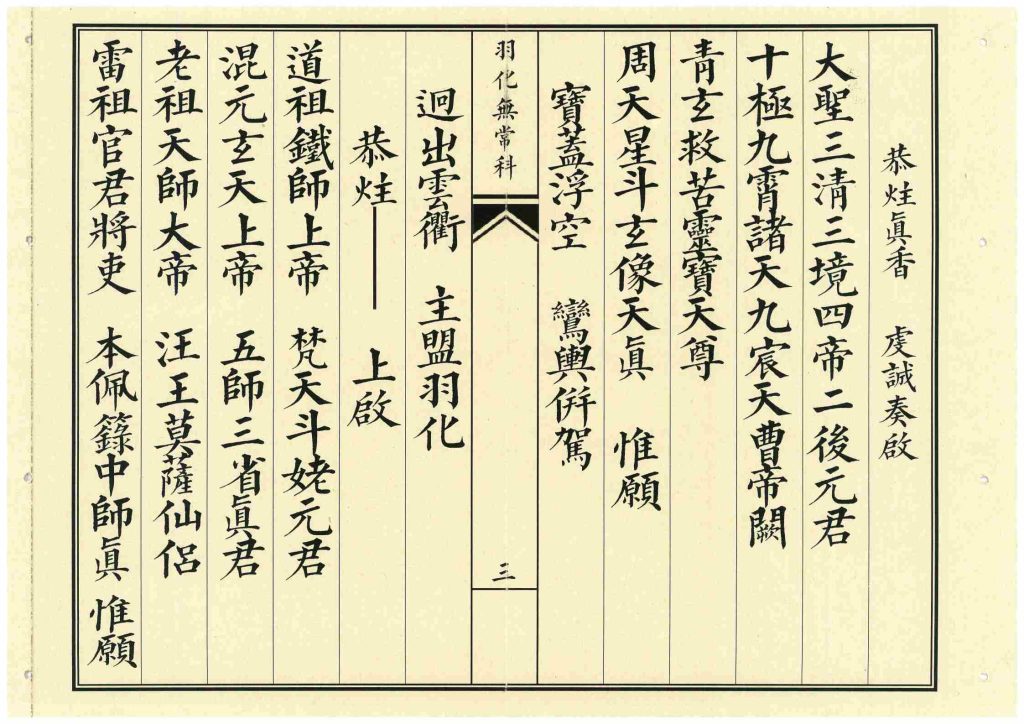 恭炷眞香　虔誠奏啟
大聖三清三境四帝二後元君
十極九霄諸天九宸天曹帝闕
青玄救苦靈寶天尊
周天星斗玄像天眞　惟願
寶蓋浮空　鸞輿併駕
羽化無常科
三
迥出雲衢　主盟羽化
恭炷——　上啟
道祖鐵師上帝　梵天斗姥元君
混元玄天上帝　五師三省眞君
老祖天師大帝　汪王莫薩仙侶
雷祖官君將吏　本佩籙中師眞　惟願